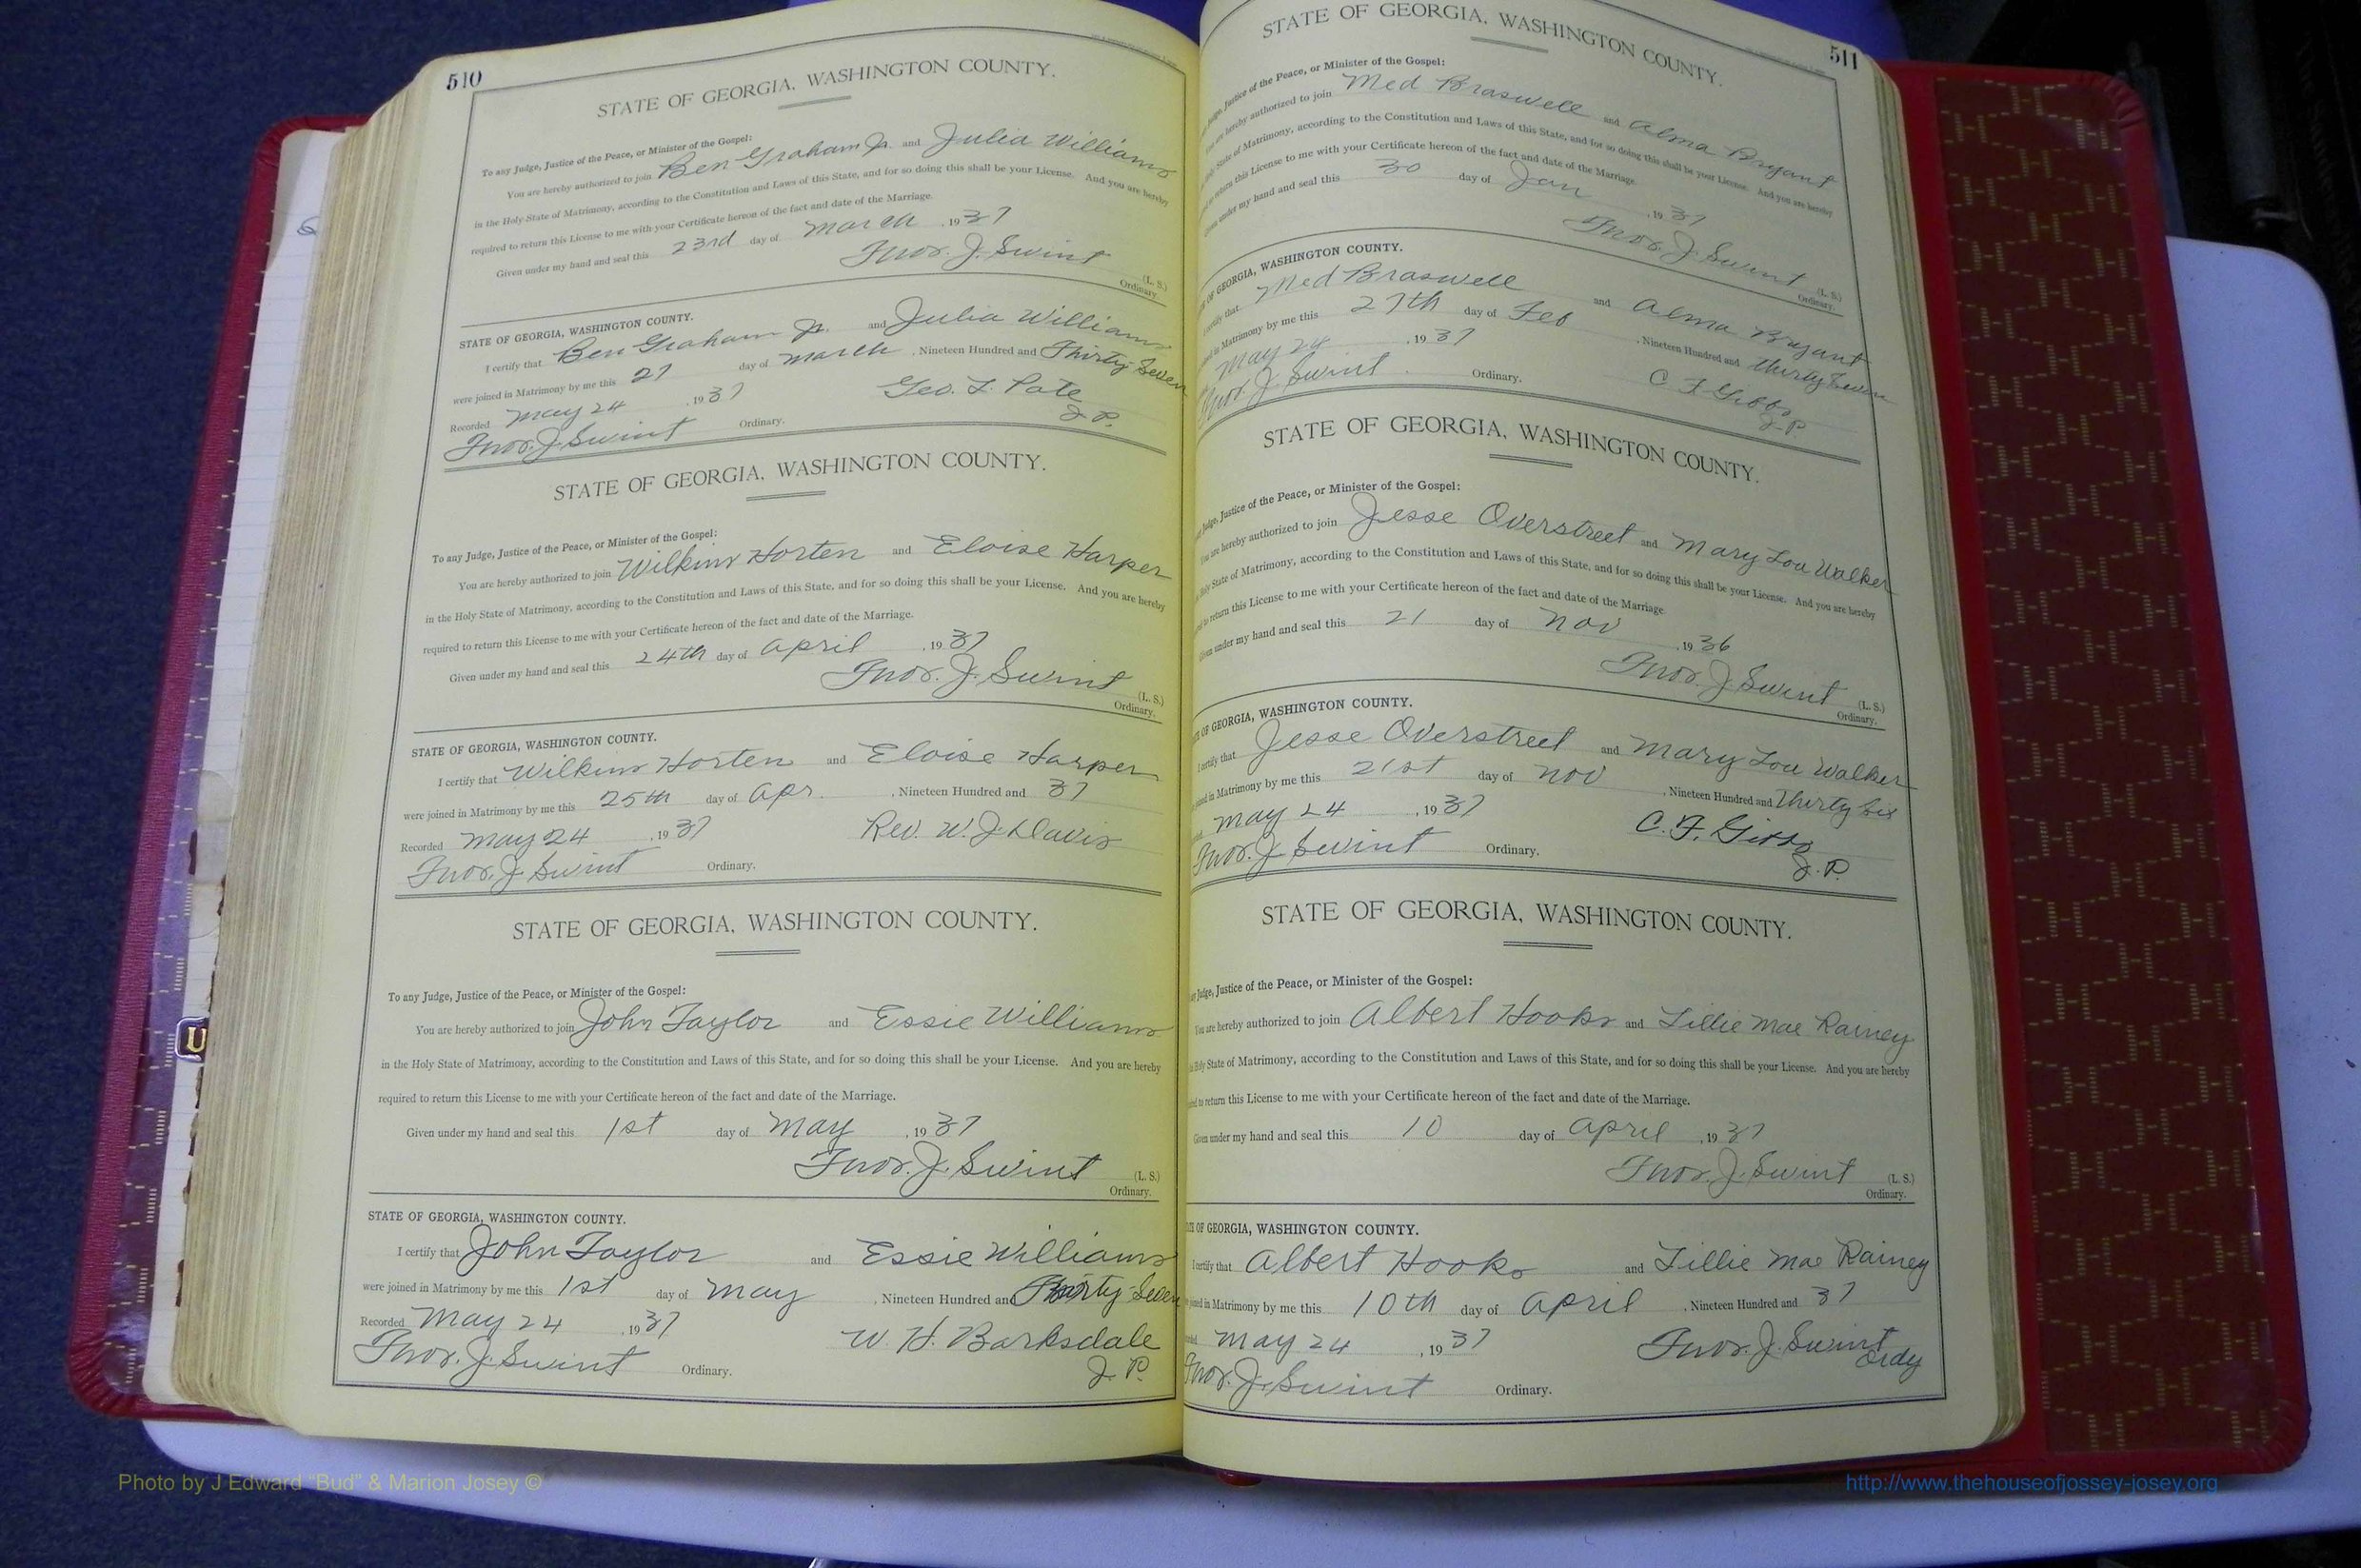 510
STATE OF GEORGIA, WASHINGTON COUNTY.
To any Judge, Justice of the Peace, or Minister of the Gospel:
You are hereby authorized to join Ben Graham Jr. and Julia Williams
in the Holy State of Matrimony, according to the Constitution and Laws of this State, and for so doing this shall be your License. And you are hereby
required to return this License to me with your Certificate hereon of the fact and date of the Marriage.
Given under my hand and seal this 23rd day of March, 1937
Thos. J. Swint (L. S.)
Ordinary.
STATE OF GEORGIA, WASHINGTON COUNTY.
I certify that Ben Graham Jr. and Julia Williams
were joined in Matrimony by me this 27 day of March, Nineteen Hundred and Thirty Seven
Recorded May 24, 1937 Geo. L. Pate
Thos. J. Swint Ordinary. J. P.
STATE OF GEORGIA, WASHINGTON COUNTY.
To any Judge, Justice of the Peace, or Minister of the Gospel:
You are hereby authorized to join Wilkins Horten and Eloise Harper
in the Holy State of Matrimony, according to the Constitution and Laws of this State, and for so doing this shall be your License. And you are hereby
required to return this License to me with your Certificate hereon of the fact and date of the Marriage.
Given under my hand and seal this 24th day of April, 1937
Thos. J. Swint (L. S.)
Ordinary.
STATE OF GEORGIA, WASHINGTON COUNTY.
I certify that Wilkins Horten and Eloise Harper
were joined in Matrimony by me this 25th day of Apr., Nineteen Hundred and 37
Recorded May 24, 1937 Rev. W. J. Davis
Thos. J. Swint Ordinary.
STATE OF GEORGIA, WASHINGTON COUNTY.
To any Judge, Justice of the Peace, or Minister of the Gospel:
You are hereby authorized to join John Taylor and Essie Williams
in the Holy State of Matrimony, according to the Constitution and Laws of this State, and for so doing this shall be your License. And you are hereby
required to return this License to me with your Certificate hereon of the fact and date of the Marriage.
Given under my hand and seal this 1st day of May, 1937
Thos. J. Swint (L. S.)
Ordinary.
STATE OF GEORGIA, WASHINGTON COUNTY.
I certify that John Taylor and Essie Williams
were joined in Matrimony by me this 1st day of May, Nineteen Hundred and Thirty-Seven
Recorded May 24, 1937 W. H. Barksdale
Thos. J. Swint Ordinary. J. P.
511
STATE OF GEORGIA, WASHINGTON COUNTY.
Judge, Justice of the Peace, or Minister of the Gospel:
You are hereby authorized to join Med Braswell and Alma Bryant
State of Matrimony, according to the Constitution and Laws of this State, and for so doing this shall be your License. And you are hereby
return this License to me with your Certificate hereon of the fact and date of the Marriage.
under my hand and seal this 30 day of Jan, 1937
Thos. J. Swint (L. S.)
Ordinary.
OF GEORGIA, WASHINGTON COUNTY.
certify that Med Braswell and Alma Bryant
in Matrimony by me this 27th day of Feb, Nineteen Hundred and Thirty Seven
May 24, 1937 C. F. Gibbs
Thos. J. Swint Ordinary. J. P.
STATE OF GEORGIA, WASHINGTON COUNTY.
Judge, Justice of the Peace, or Minister of the Gospel:
You are hereby authorized to join Jesse Overstreet and Mary Lou Walker
Holy State of Matrimony, according to the Constitution and Laws of this State, and for so doing this shall be your License. And you are hereby
to return this License to me with your Certificate hereon of the fact and date of the Marriage.
Given under my hand and seal this 21 day of Nov, 1936
Thos. J. Swint (L. S.)
Ordinary.
OF GEORGIA, WASHINGTON COUNTY.
I certify that Jesse Overstreet and Mary Lou Walker
joined in Matrimony by me this 21st day of Nov, Nineteen Hundred and Thirty Six
May 24, 1937 C. F. Gibbs
Thos. J. Swint Ordinary. J. P.
STATE OF GEORGIA, WASHINGTON COUNTY.
any Judge, Justice of the Peace, or Minister of the Gospel:
You are hereby authorized to join Albert Hooks and Lillie Mae Rainey
Holy State of Matrimony, according to the Constitution and Laws of this State, and for so doing this shall be your License. And you are hereby
to return this License to me with your Certificate hereon of the fact and date of the Marriage.
Given under my hand and seal this 10 day of April, 1937
Thos. J. Swint (L. S.)
Ordinary.
OF GEORGIA, WASHINGTON COUNTY.
I certify that Albert Hooks and Lillie Mae Rainey
joined in Matrimony by me this 10th day of April, Nineteen Hundred and 37
May 24, 1937 Thos. J. Swint
Ordy
Thos. J. Swint Ordinary.
Photo by J Edward "Bud" & Marion Josey ©
http://www.thehouseofjossey-josey.org